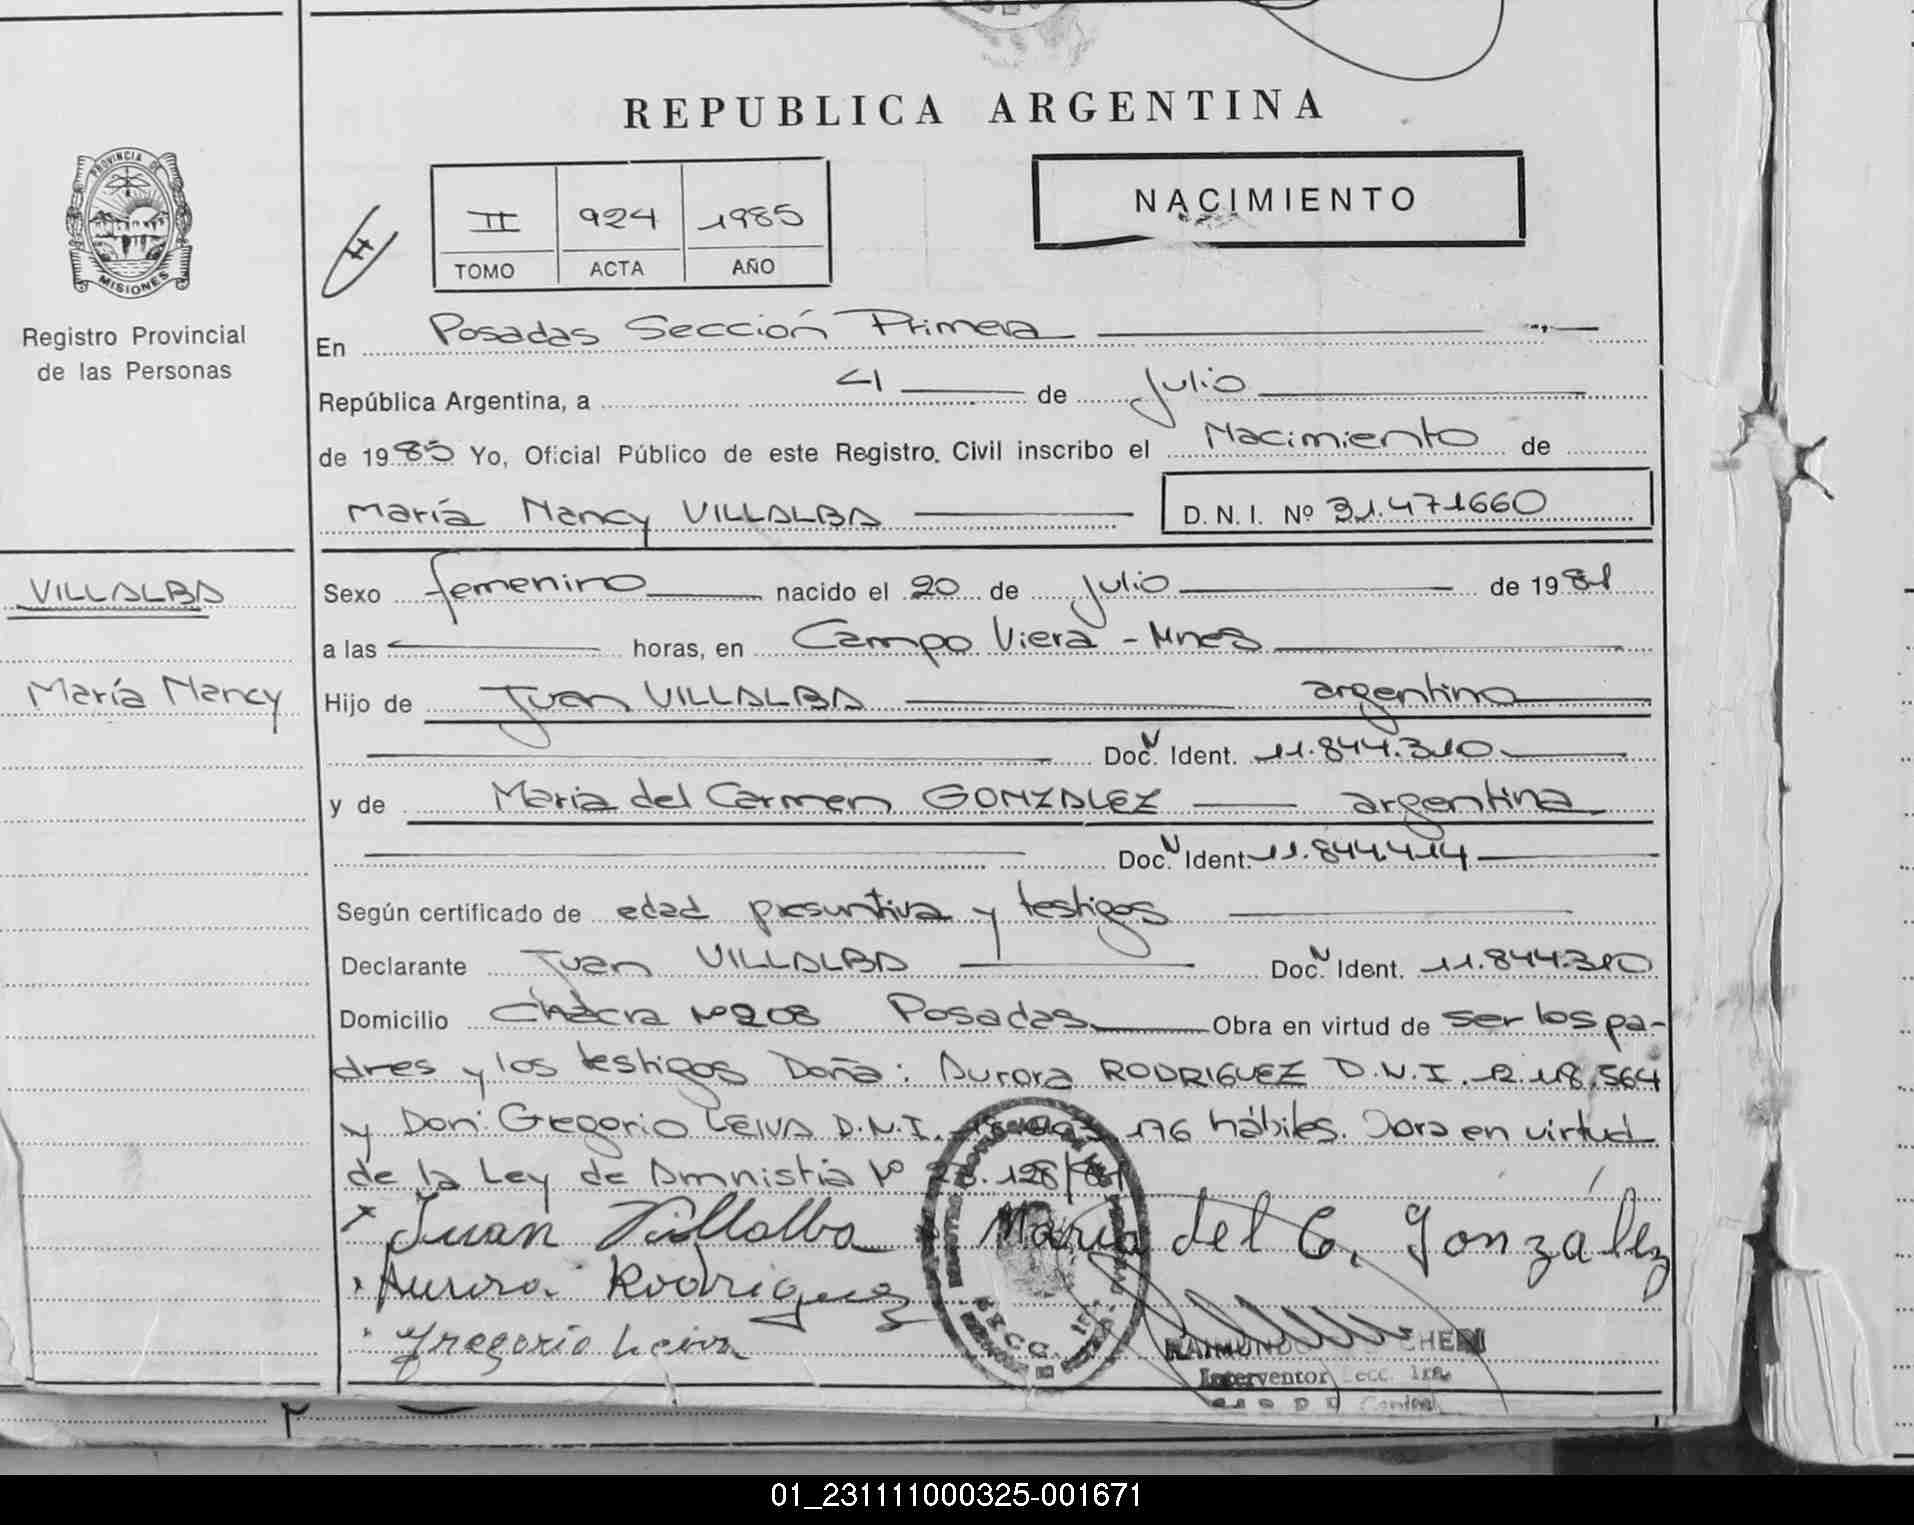 REPUBLICA ARGENTINA
PROVINCIA DE
MISIONES
Registro Provincial
de las Personas
II 924 1985
TOMO ACTA AÑO
NACIMIENTO
En Posadas Sección Primera
República Argentina, a de Julio
de 1985 Yo, Oficial Público de este Registro Civil inscribo el Nacimiento de
María Nancy VILLALBA D. N. I. Nº 31.471660
VILLALBA
María Nancy
Sexo femenino nacido el 20 de Julio de 1981
a las horas, en Campo Viera - Mnes
Hijo de Juan VILLALBA argentino
Doc. Ident. 11.844.310
y de María del Carmen GONZALEZ argentina
Doc. Ident. 11.844.414
Según certificado de edad presuntiva y testigos
Declarante Juan VILLALBA Doc. Ident. 11.844.310
Domicilio Chacra Nº 208 Posadas Obra en virtud de ser los pa-
dres y los testigos Doña: Aurora RODRIGUEZ D.N.I. 12.118.564
y Don: Gregorio LEIVA D.N.I. 176 hábiles. Obra en virtud
de la Ley de Amnistia Nº
Juan Villalba María del C. González
Aurora Rodriguez
Gregorio Leiva
RAIMUNDO
Interventor Secc. 1ra.
01_231111000325-001671